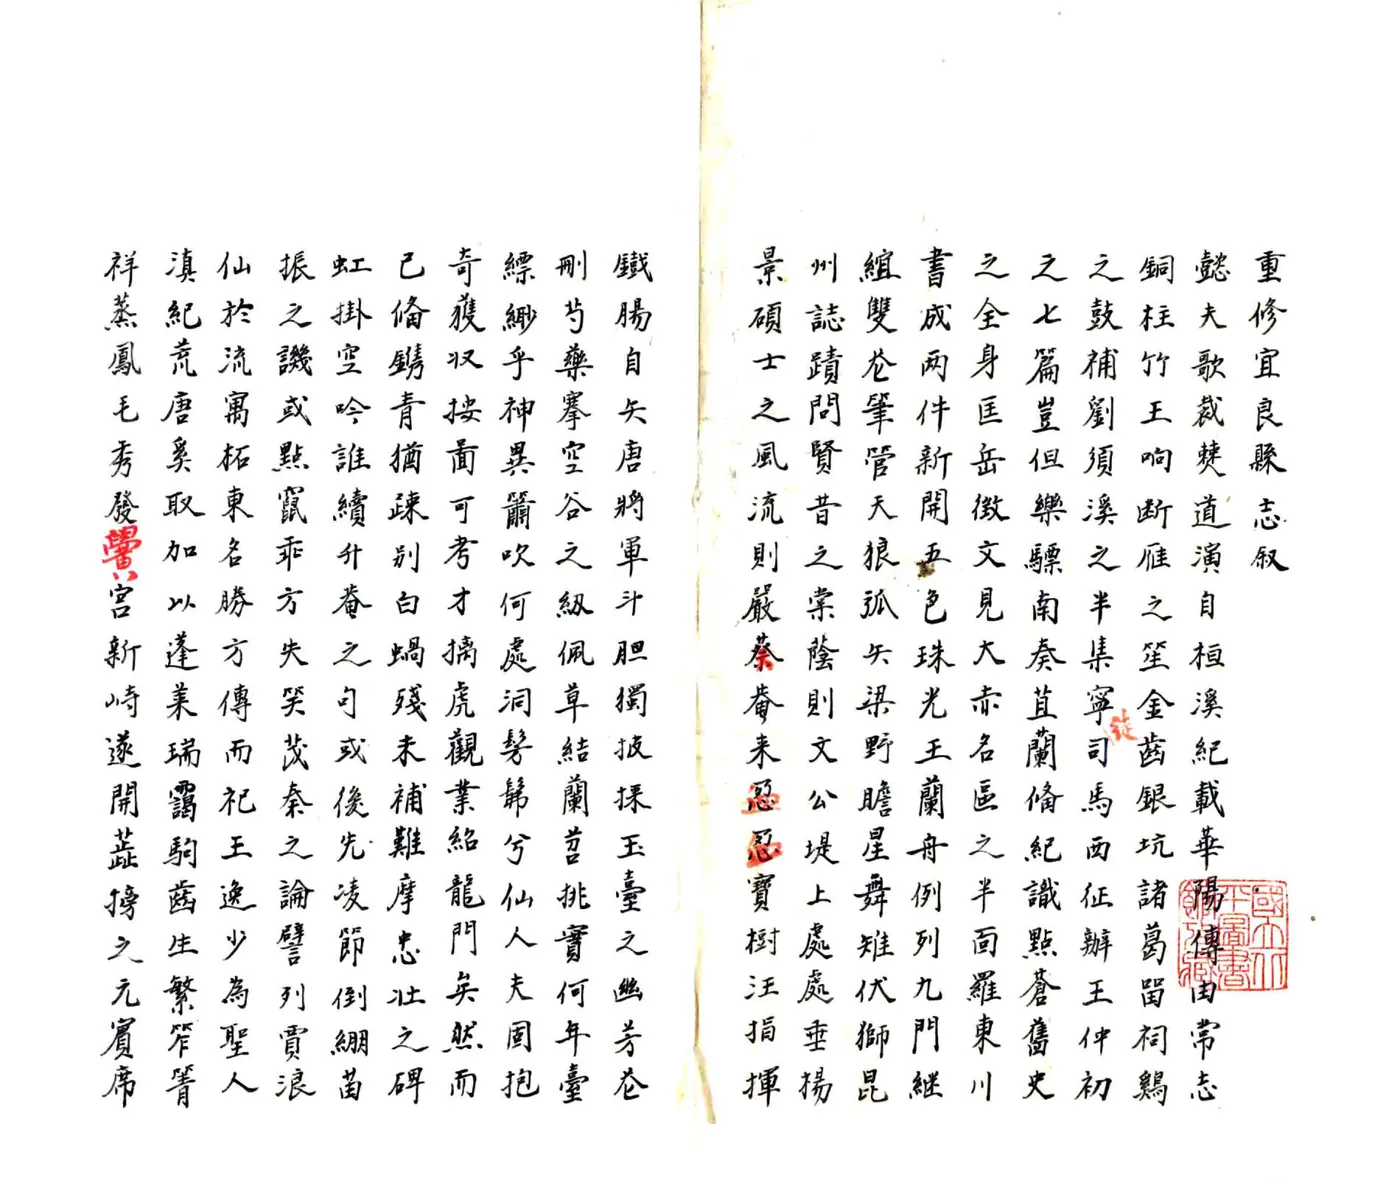 重修宜良縣志叙
懿夫歌裁僰道演自桓溪紀載華陽傳由常志
銅柱竹王响断雁之笙金齒銀坑諸葛留祠鷄
之鼓補劉須溪之半集寧司馬西征辦王仲初
之七篇豈但樂驃南奏苴蘭俻紀識點蒼舊史
之全身匡岳徴文見大赤名區之半面羅東川
書成两件新開五色珠光王蘭舟例列九門継
紐雙芲筆管天狼弧矢梁野瞻星舞雉伏獅昆
州誌蹟問賢昔之棠蔭則文公堤上處處垂揚
景碩士之風流則嚴蔡菴来寶樹汪指揮
鐵腸自矢唐將軍斗胆獨披採玉臺之幽芳芲
刪芍藥搴空谷之級佩草結蘭苕挑實何年臺
縹緲乎神異簫吹何處洞髣髴兮仙人夫固抱
奇獲収按啚可考才摛虎觀業紹龍門矣然而
已俻鐫青猶疎别白蝸殘未補難摩忠壮之碑
虹掛空吟誰續升菴之句或後先凌節倒綳苗
振之譏或點竄乖方失笑茂秦之論譬列賈浪
仙於流寓柘東名勝方傳而祀王逸少為聖人
滇紀荒唐奚取加以蓬莱瑞靄駒齒生繁笮箐
祥蒸鳳毛秀發黌宮新峙遂開蕋榜之元賓席